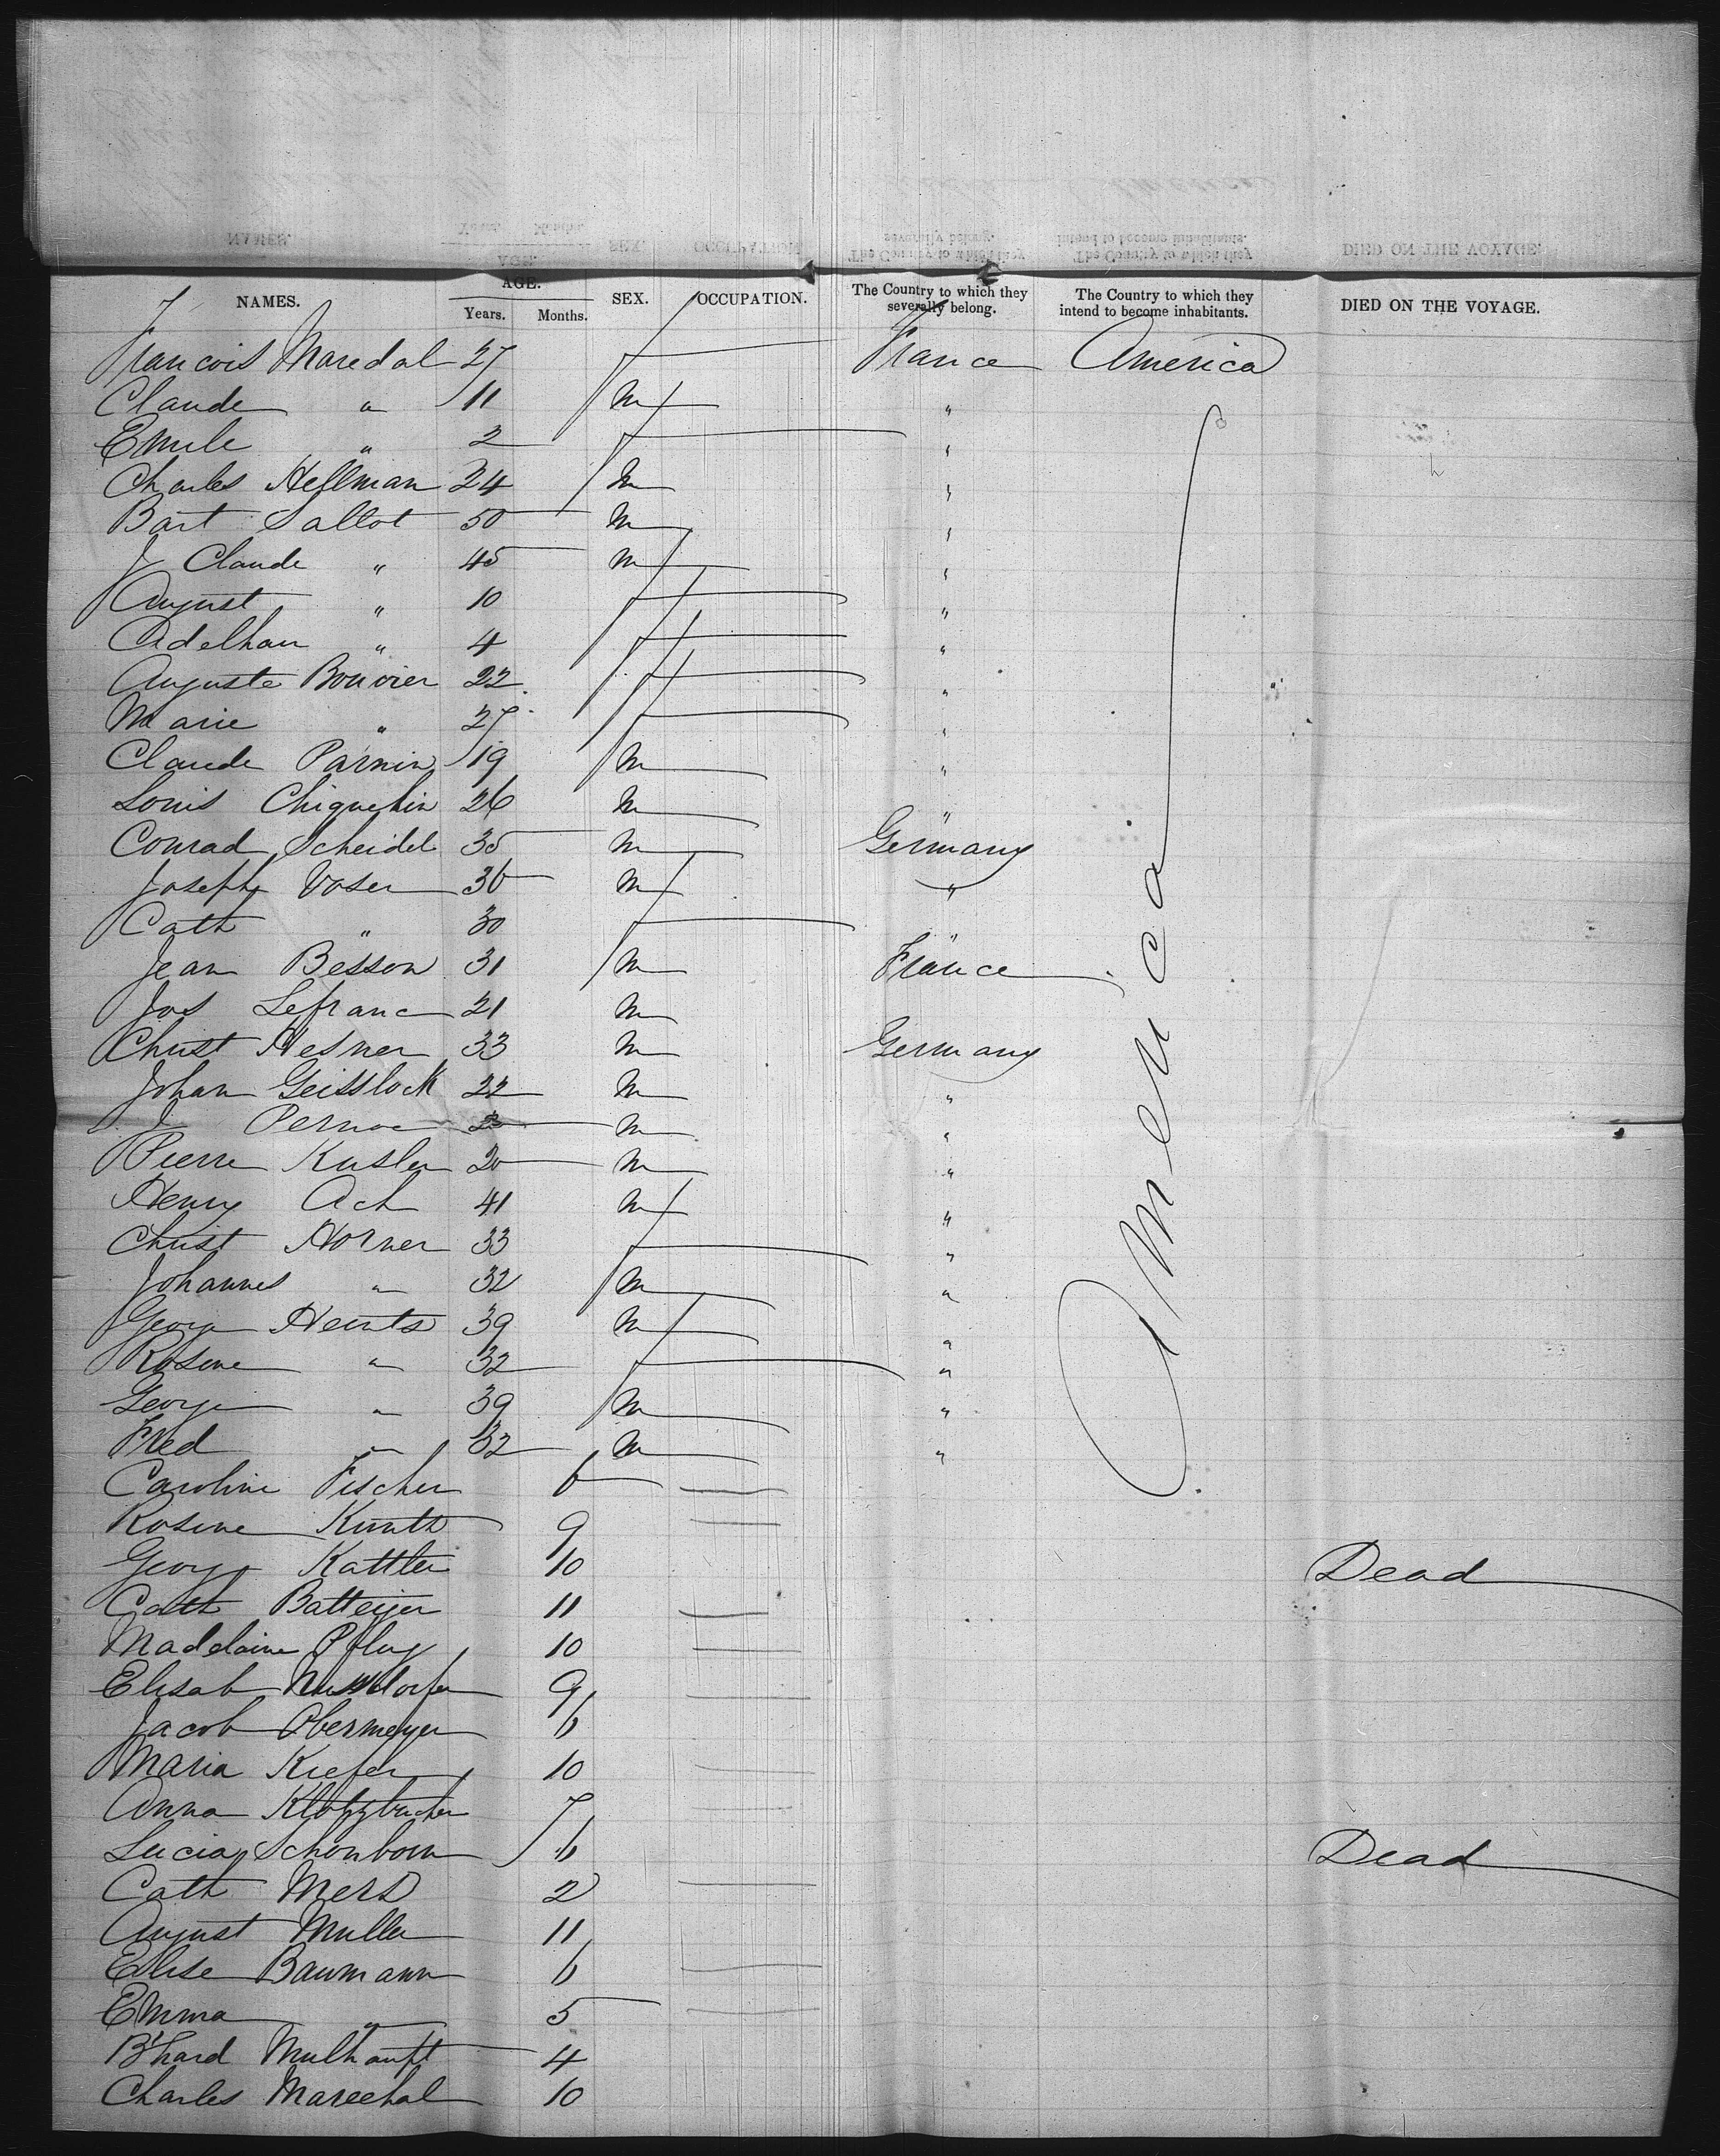 NAMES. AGE. Years. Months. SEX. OCCUPATION. The Country to which they severally belong. The Country to which they intend to become inhabitants. DIED ON THE VOYAGE.
Francois Maredal 27 f France America
Claude " 11 m "
Emile " 2 f "
Charles Hellman 24 m "
Bart Sallot 50 m "
J Claude " 45 m "
August " 10 f "
" 4 f "
Auguste Bouvier 22 f "
Marie " 27 f "
Claude Parnin 19 m "
Louis 26 m "
Conrad Scheidel 35 m Germany
Joseph Voser 36 m "
Cath " 30 f "
Jean Besson 31 m France
Jos Lefranc 21 m
Christ Hesner 33 m Germany
Johan Geisslock 22 m "
J m "
Pierre Kusler 20 m "
Henry Ach 41 m "
Christ Horner 33 f "
Johannes " 32 m "
George Heints 39 m "
Rosine " 32 f "
George " 39 m "
Fred " 32 m "
America
Caroline Fischer 6
Rosine Kunth 9
Georg Kattler 10 Dead
Cath Batteiger 11
Madelaine Pflug 10
Elisab 9
Jacob Obermeyer 6
Maria Kiefer 10
Anna 7
Lucia Schonborn 6 Dead
Cath Mers 2
August Muller 11
Elise Baumann 6
Emma " 5
B'hard Mulhaupt 4
Charles Marechal 10